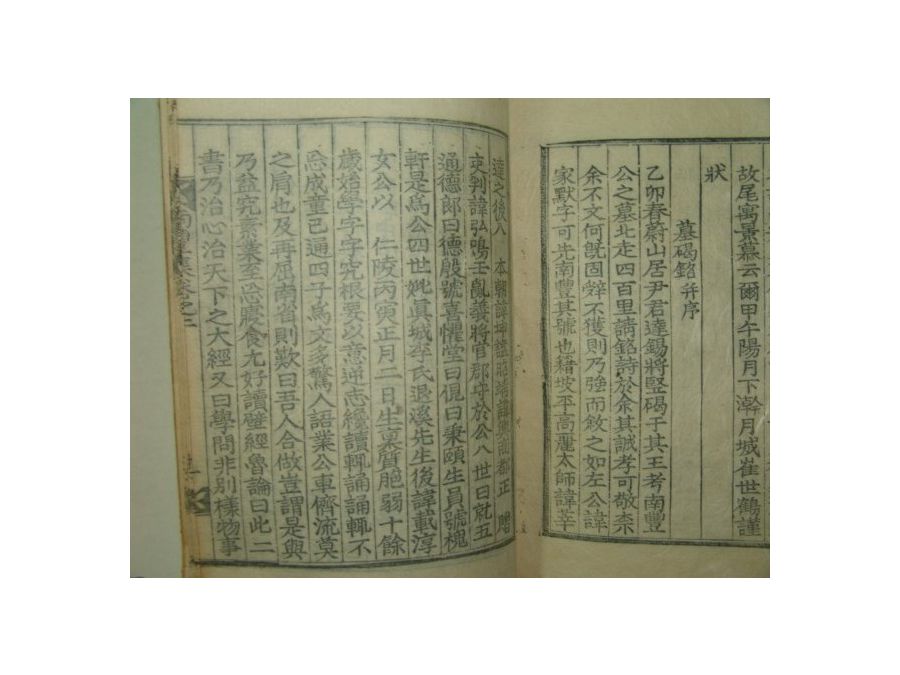 故尾寓景慕云爾甲午陽月下澣月城崔世鶴謹
狀
墓碣銘 并序
乙卯春蔚山居尹君達錫將竪碣于其王考南豐
公之墓北走四百里請銘詩於余其誠孝可敬柰
余不文何旣固辤不獲則乃強而敘之如左公諱
家默字可先南豐其號也籍坡平高麗太師諱莘
達之後入 本朝諱坤諡昭靖 都正 贈
吏判諱弘鳴壬亂義將官郡守於公八世曰就五
通德郎曰德殷號喜懼堂曰俔曰秉頤生員號槐
軒是爲公四世妣眞城李氏退溪先生後諱載淳
女公以 仁陵丙寅正月二日生稟質脆弱十餘
歲始學字字究根要以意逆志纔讀輒誦誦輒不
忘成童已通四子爲文多驚人語業公車儕流莫
之肩也及再屈南省則歎曰吾人合做豈謂是與
乃益究素業至忘寢食尤好讀壁經魯論曰此二
書乃治心治天下之大經又曰學問非別樣物事
卷之二